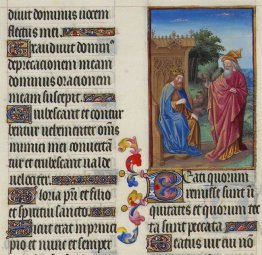 diuit dominus uocem
fletus mei.
Exaudiuit dominus
deprecacionem meam
dominus oracionem
meam suscepit.
Erubescant et contur
bentur uehementer omnes
inimici mei conuerta
tur et erubescant ualde
uelociter.
Gloria patri et filio
et spiritui sancto.
Sicut erat in princi
pio et nunc et semper
Beati quorum
remisse sunt in
iquitates et quorum tec
ta sunt peccata.
Beatus uir cui non